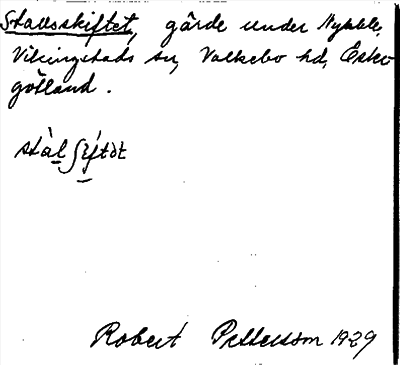 Stadsskiftet, gärde under Nybble,
Vikingstads sn, Valkebo hd, Öster
götland.
Robert Pettersson 1929